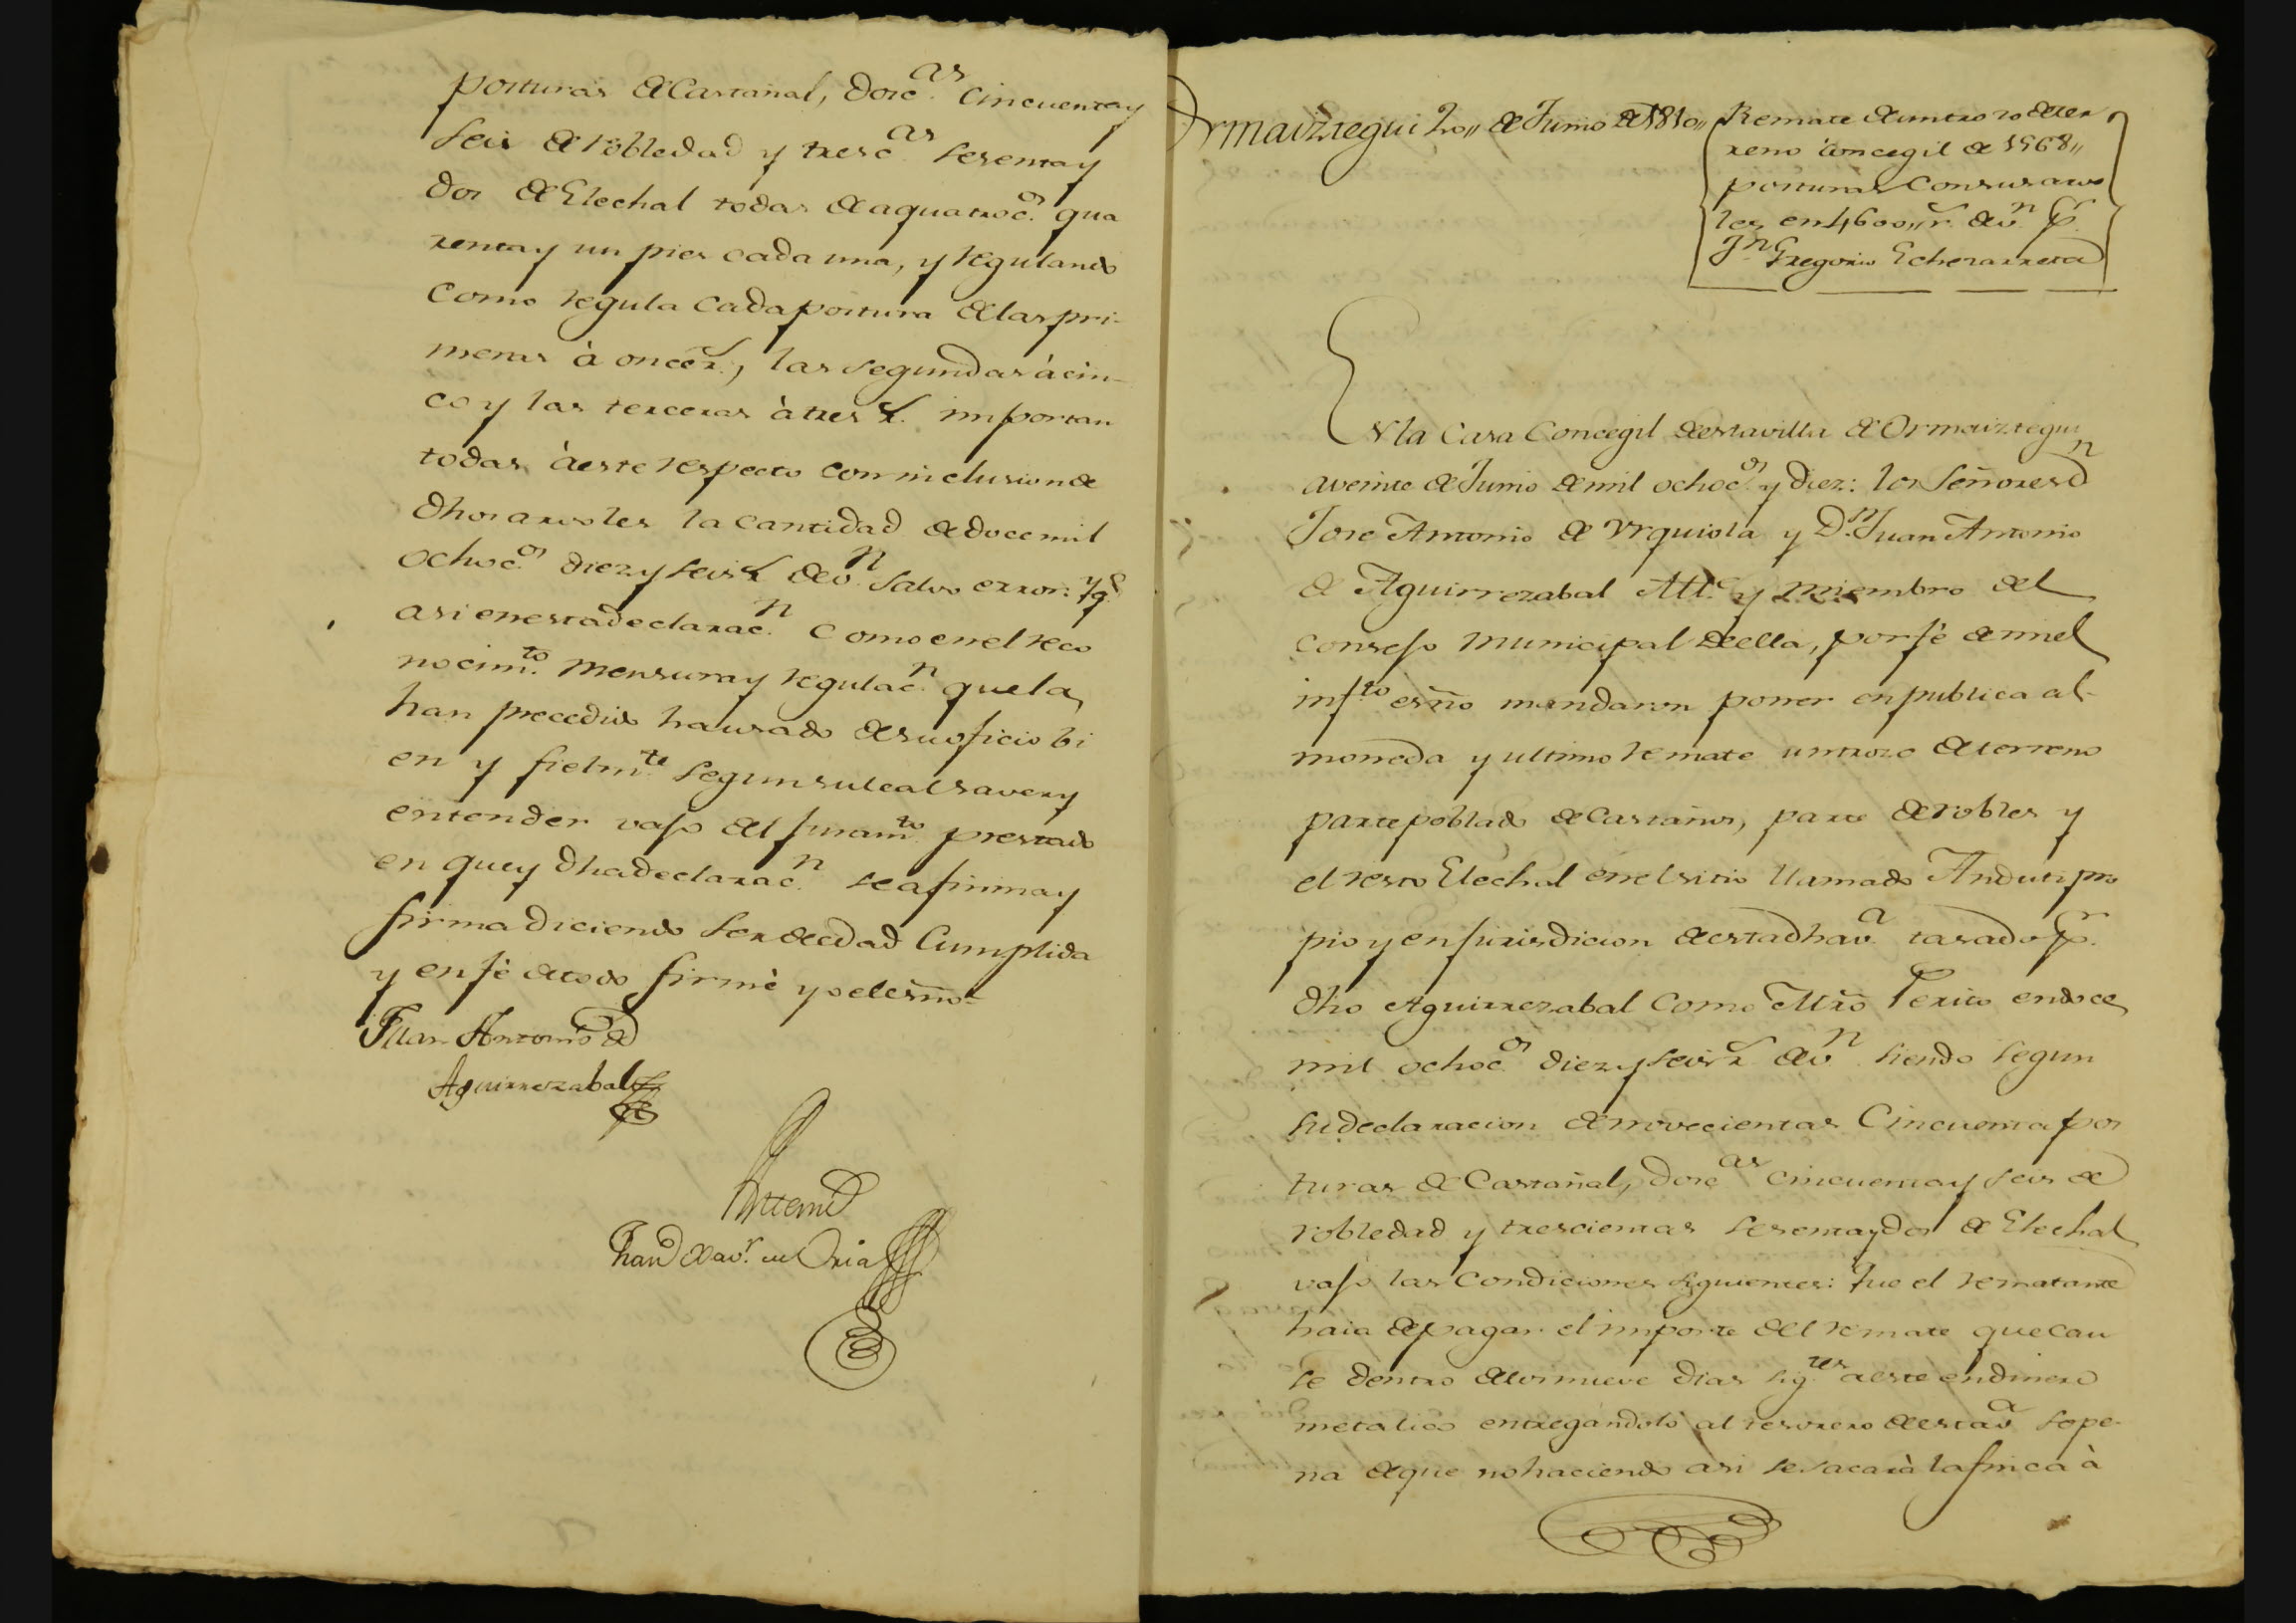 posturas de Castañal, dosc.as cincuenta y
seis de robledad y tresc.as sesenta y
dos de Elechal todas de a quatroc.s qua
renta y un pies cada una, y regulando
como regula cada postura de las pri-
meras à once r.s, las segundas à cin-
co y las terceras à tres r.s importan
todas à este respecto con inclusion de
dhos arvoles la cantidad de doce mil
ochoc.s diez y seis r.s de v.n salvo error: Y q.e
asi en esta declarac.n como en el reco
nocim.to mensura y regulac.n que la
han precedido ha usado de su oficio bi
en y fielm.te segun su leal saver y
entender vajo del juram.to prestado
en que y dha declarac.n se afirma y
firma diciendo ser de edad cumplida
y en fè de todo firmè yo el esño=
Juan Antonio de
Aguirrezabal
Ante mi
Fran.co Xav.r de Oria
Ormaiztegui 20,, de Junio de 1810,,
Remate de un trozo de ter
reno concegil de 1568,,
posturas con sus arvo
les en 4600,, r.s de v.n p.r
J.n Gregorio Echezarreta
En la Casa Concegil de esta villa de Ormaiztegui
a veinte de Junio de mil ochoc.s y diez: los Señores D.n
Jose Antonio de Urquiola y D.n Juan Antonio
de Aguirrezabal All.e y miembro del
consejo municipal de ella, por fè de mi el
inf.to esño mandaron poner en publica al-
moneda y ultimo remate un trozo de terreno
parte poblado de Castaños, parte de robles y
el resto Elechal en el sitio llamado Anduti pro
pio y en jurisdicion de esta dha v.a tasado p.r
dho Aguirrezabal como Mro Perito en doce
mil ochoc.s diez y seis r.s de v.n siendo segun
su declaracion de novecientas cincuenta pos
turas de Castañal, dosc.as cincuenta y seis de
robledad y trescientas sesenta y dos de Elechal
vajo las condiciones siguientes: Que el rematante
haia de pagar el importe del remate que cau
se dentro de los nueve dias sig.tes a este en dinero
metalico entregandolo al tesorero de esta v.a so pe-
na de que no haciendo asi se sacarà la finca à